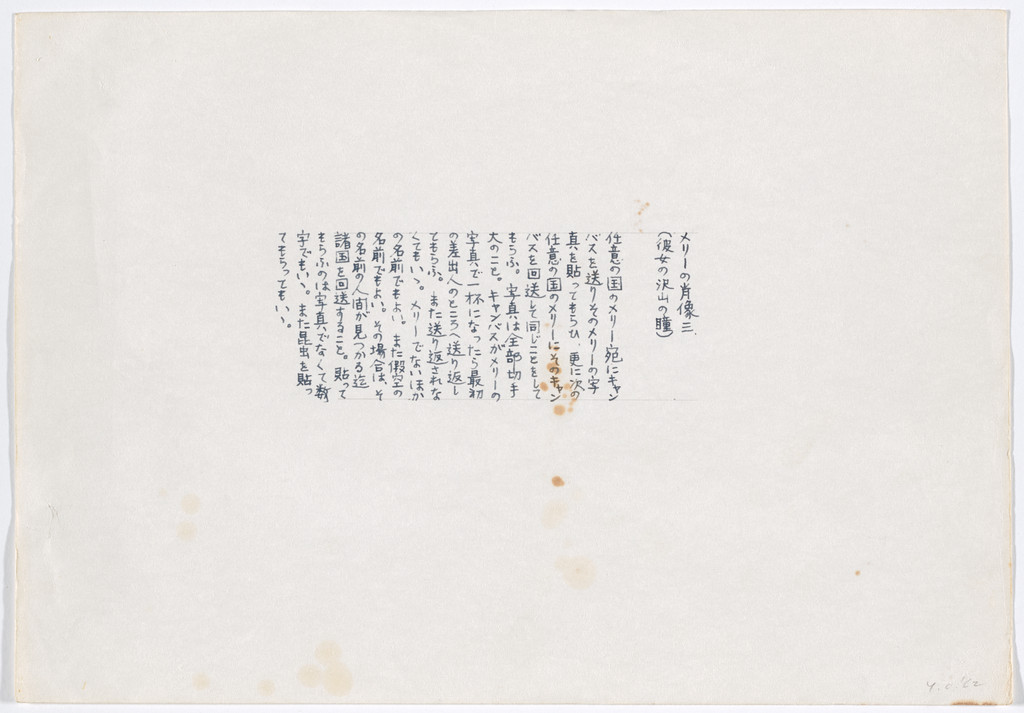 メリーの肖像三.
（彼女の沢山の瞳）
任意の国のメリー宛にキャン
バスを送りそのメリーの写
真を貼ってもらひ、更に次の
任意の国のメリーにそのキャン
バスを回送して同じことをして
もらふ。写真は全部切手
大のこと。キャンバスがメリーの
写真で一杯になったら最初
の差出人のところへ送り返し
てもらふ。また送り返されな
くてもいゝ。メリーでないほか
の名前でもよい。また假空の
名前でもよい。その場合は、そ
の名前の人間が見つかる迄
諸国を回送すること。貼って
もらふのは写真でなくて数
字でもいゝ。また昆虫を貼っ
てもらってもいい。
y.o.'62